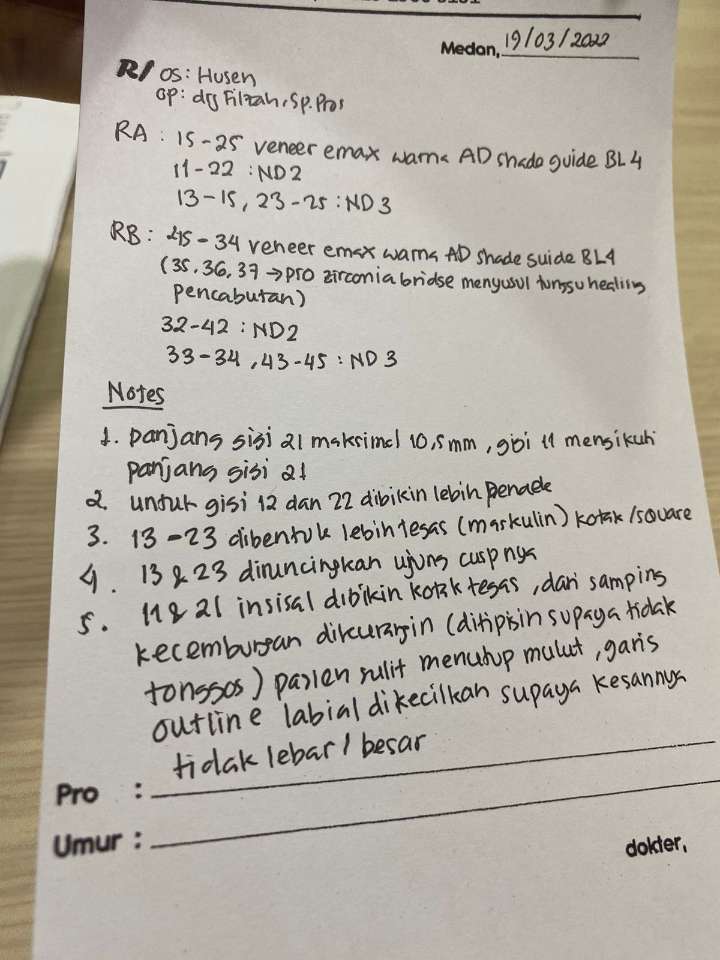 Medan, 19/03/2022
R/ OS: Husen
OP: drg Filzah, Sp.Pros
RA : 15-25 veneer emax warna AD shade guide BL4
11-22 : ND2
13-15, 23-25 : ND3
RB : 45-34 veneer emax warna AD shade guide BL4
(35, 36, 37 → pro zirconia bridge menyusul tunggu healing
pencabutan)
32-42 : ND2
33-34, 43-45 : ND3
Notes
1. panjang gigi 21 maksimal 10,5mm, gigi 11 mengikuti
panjang gigi 21
2. untuk gigi 12 dan 22 dibikin lebih pendek
3. 13-23 dibentuk lebih tegas (maskulin) kotak/square
4. 13 & 23 diruncingkan ujung cuspnya
5. 11 & 21 insisal dibikin kotak tegas, dari samping
kecembungan dikurangin (ditipisin supaya tidak
tonggos) pasien sulit menutup mulut, garis
outline labial dikecilkan supaya kesannya
tidak lebar / besar
Pro :
Umur :
dokter,